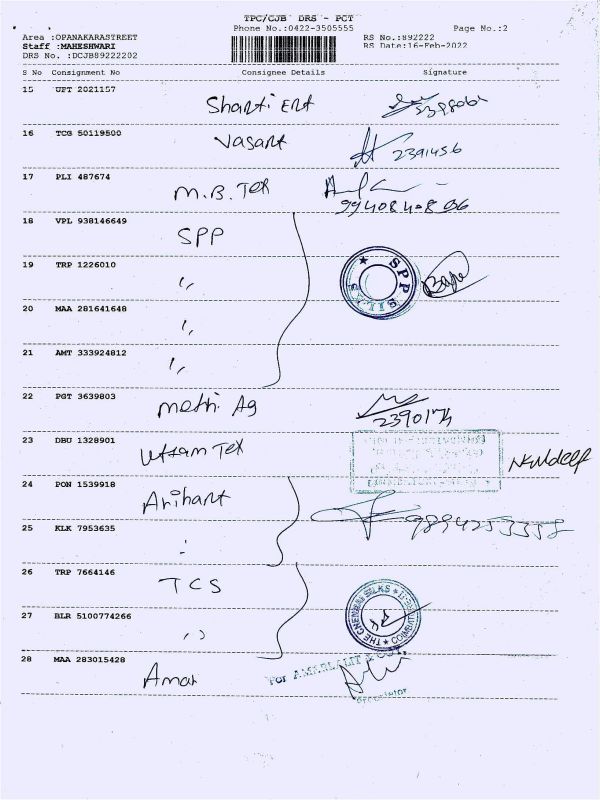 TPC/CJB DRS - PCT
Phone No.:0422-3505555
Page No.:2
Area :OPANAKARASTREET
RS No.:892222
Staff :MAHESHWARI
RS Date:16-Feb-2022
DRS No. :DCJB89222202
S No Consignment No Consignee Details Signature
15 UPT 2021157 Shanti Ent
16 TCG 50119500 Vasant 2391456
17 PLI 487674 M.B. Tex
9940840806
18 VPL 938146649 SPP
19 TRP 1226010 "
SPP SILKS
20 MAA 281641648 "
21 AMT 333924812 "
22 PGT 3639803 Methi Ag
23 DBU 1328901 Uttam Tex
24 PON 1539918 Arihant
25 KLK 7953635 "
9894253358
26 TRP 7664146 TCS
THE CHENNAI SILKS
27 BLR 5100774266 "
28 MAA 283015428 Amar
For AMARLALIT
Proprietor